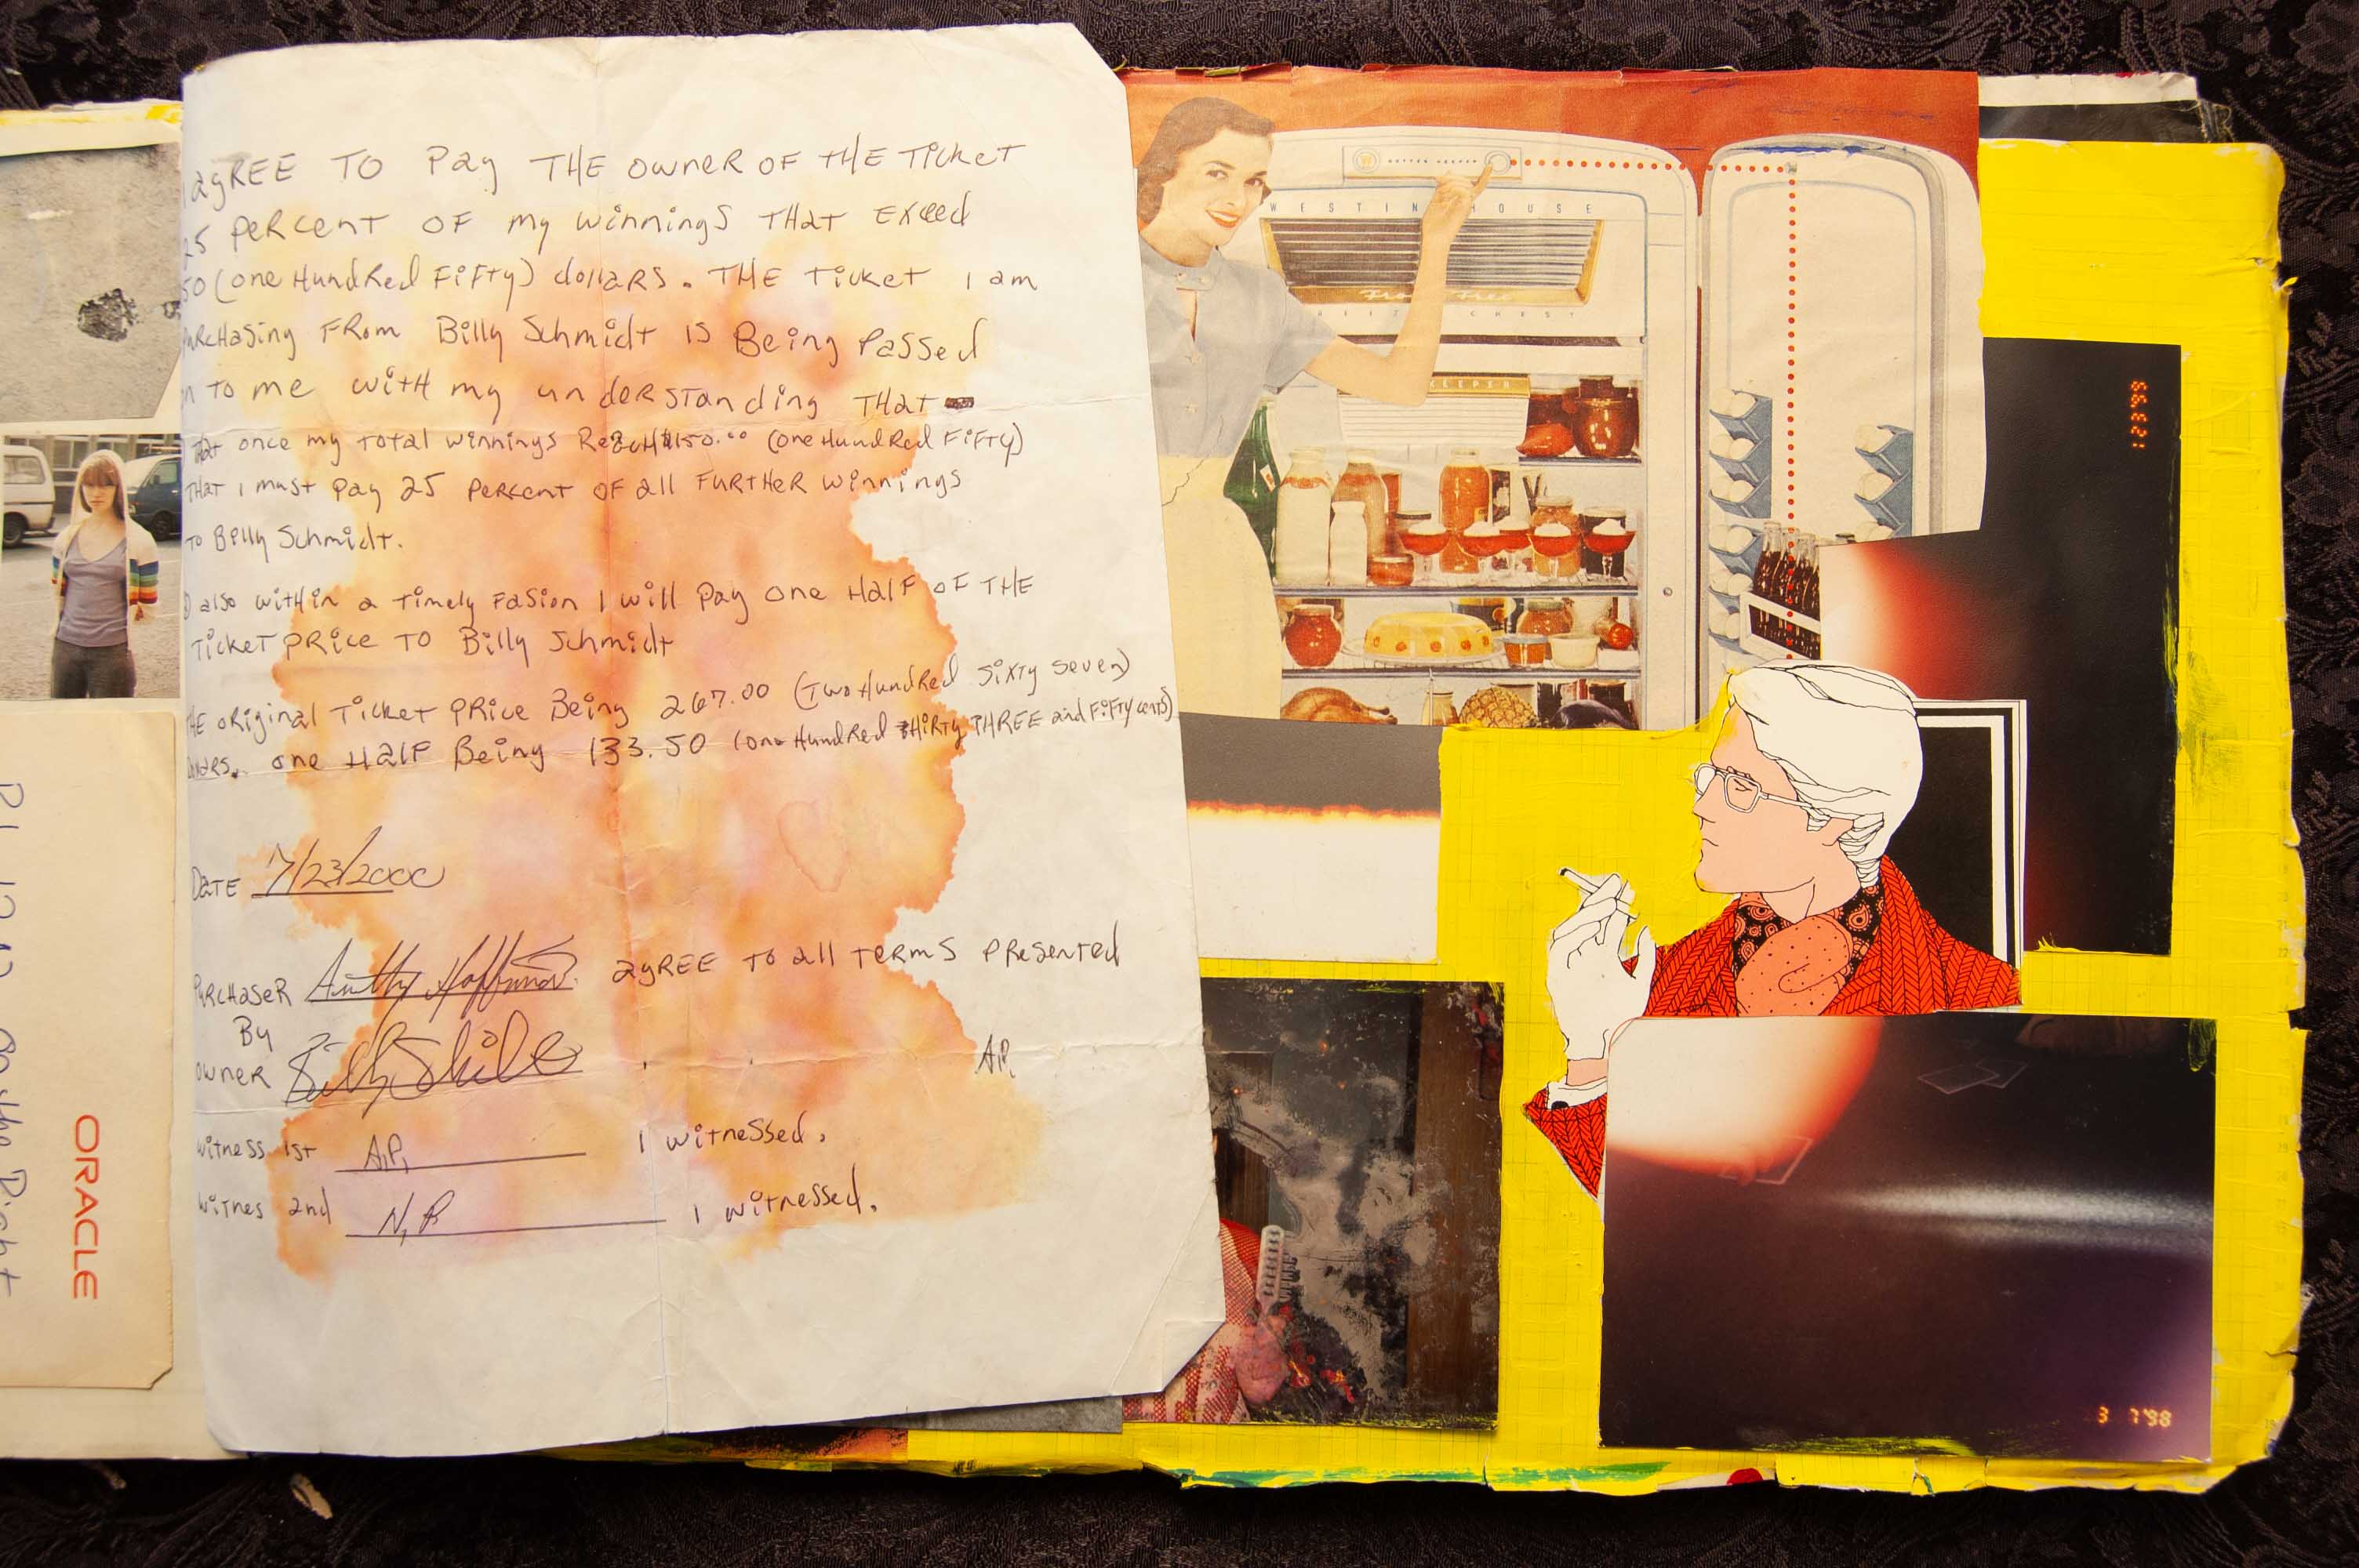 I agREE TO Pay THE OWNER OF THE TICKET
25 PERCENT OF my winnings THAT EXCEED
50 (one HundRed FiFTy) dollars. THE TICKET I am
PURCHASing FROM Billy Schmidt IS Being Passed
on TO me WITH my understanding THAT
THAT once my TOTAL winnings ReacH $150.00 (one HundRed FiFTy)
THAT I must pay 25 PERCENT OF all FURTHER winnings
TO Billy Schmidt.
also within a Timely Fasion I will pay one HalF OF THE
TICKET PRICE TO Billy Schmidt
THE ORiginal TICKET PRICE Being 267.00 (Two Hundred SIXTY seven)
Dollars. one HalF Being 133.50 (one Hundred THIRTY THREE and FiFTy cents)
DATE 7/23/2000
PURCHASER Anthy Hoffman agREE TO all TERMS PResented
By
OWNER
A.P.
witness 1st A.P. I witnessed.
witnes 2nd N.P. I witnessed.
ORACLE
WESTINGHOUSE
Frost-Free
FREEZE CHEST
KEEPER
12 23'99
3 7'98